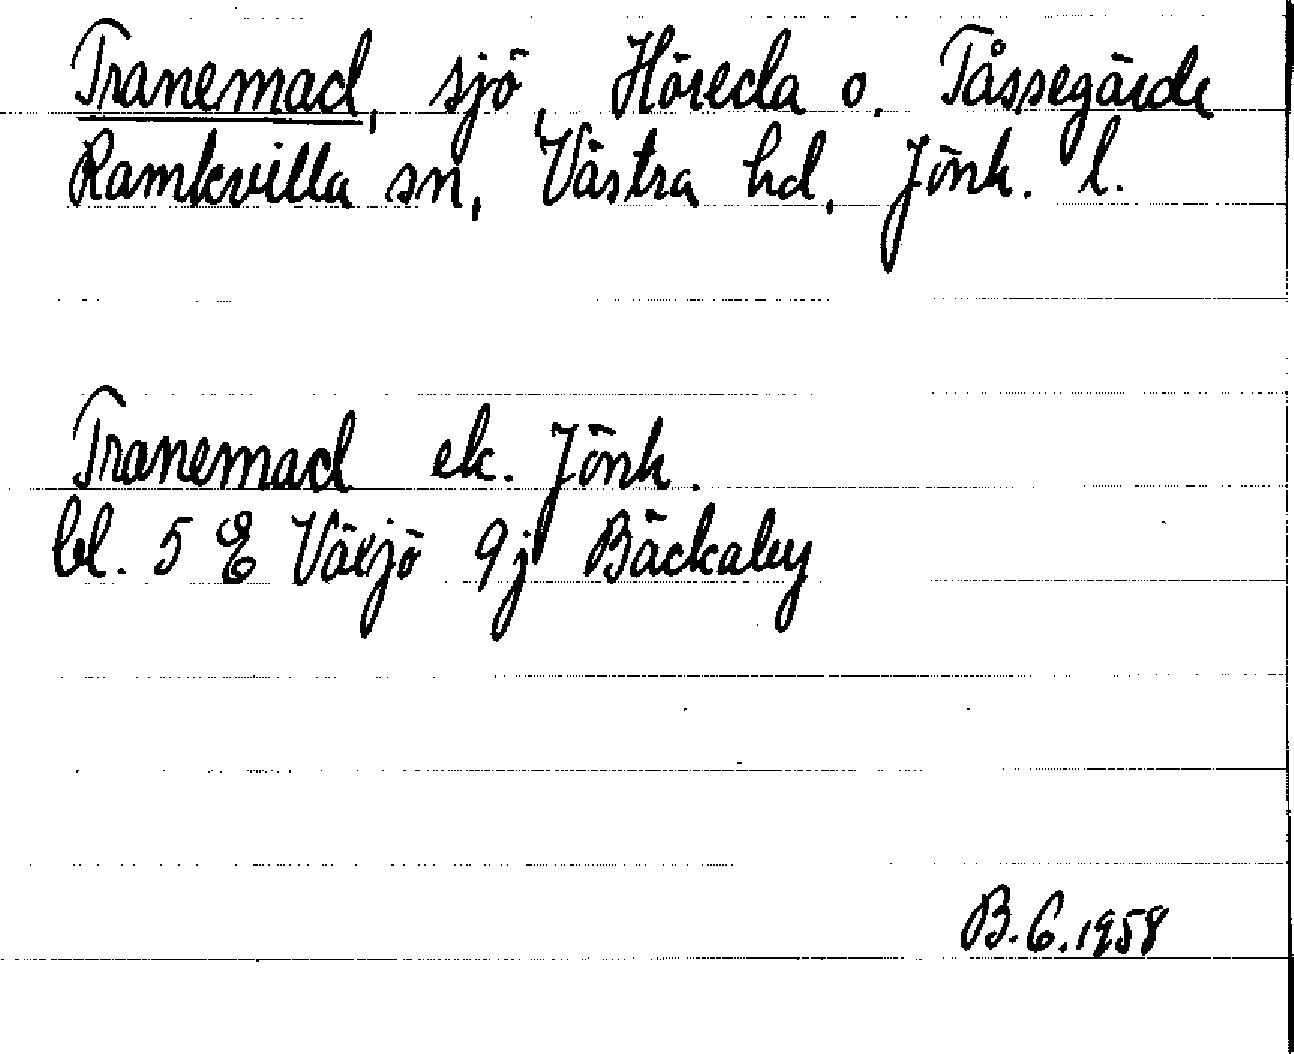 Tranemad, sjö, Höreda o. Tåssegärde
Ramkvilla sn, Västra hd, Jönk. l.
Tranemad ek. Jönk.
bl. 5 E Växjö 9j Bäckaby
B.G. 1958